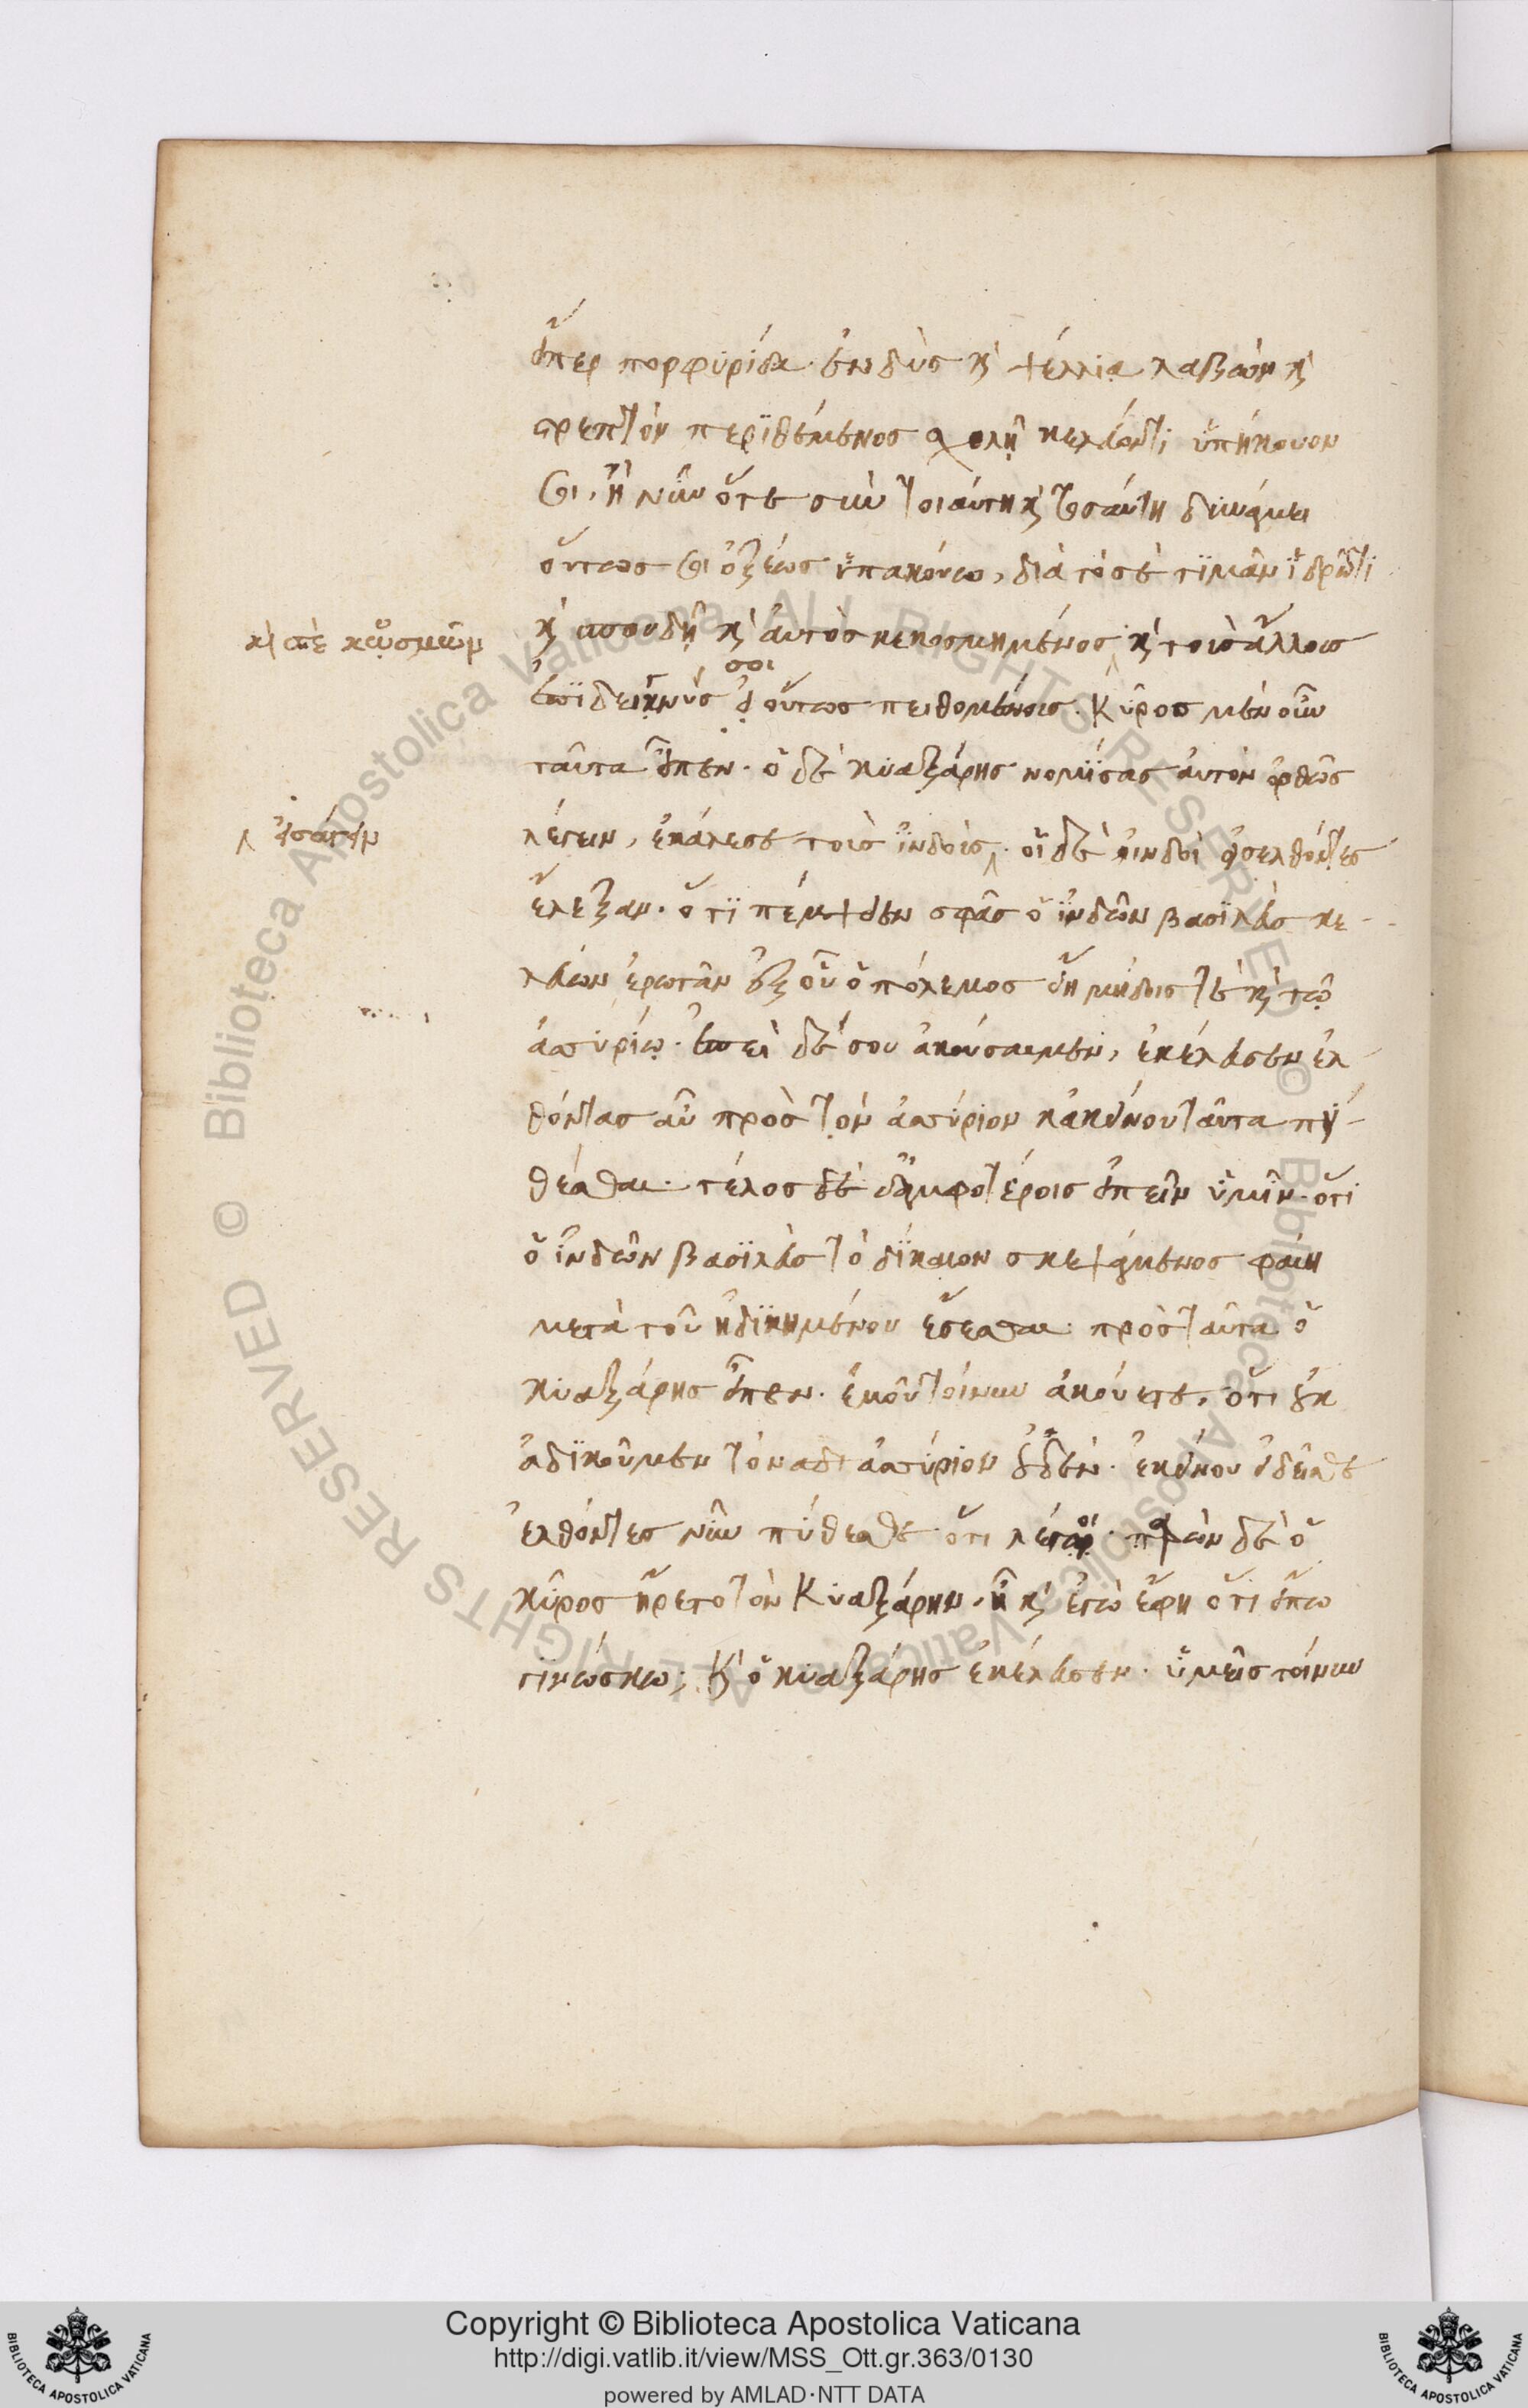 εἴπερ πορφυρίδα ἐνδὺς κὶ ψέλλια λαβὼν κὶ
στρεπτὸν περιθέμενος σχολῇ κελεύοντι ὑπήκουον
σοι, ἢ νῦν ὅτε σὺν τοιαύτῃ κὶ τοσαύτῃ δυνάμει
οὕτως σοι ὀξέως ὑπακούω, διὰ τὸ σὲ τιμᾶν ἱδρῶτι
κὶ σὲ κοσμῶν
κὶ σπουδῇ κὶ αὐτὸς κεκοσμημένος, κὶ τοὺς ἄλλους
σοι
ἐπιδεικνὺς οὕτως πειθομένους. Κῦρος μὲν οὖν
ταῦτα εἶπεν. ὁ δὲ κυαξάρης νομίσας αὐτὸν ὀρθῶς
εἰσάγειν
λέγειν, ἐκάλεσε τοὺς ἰνδούς. οἱ δὲ ἰνδοὶ εἰσελθόντες
ἔλεξαν. ὅτι πέμψειεν σφᾶς ὁ ἰνδῶν βασιλεὺς κε
λεύων ἐρωτᾶν ἐξ οὗ ὁ πόλεμος εἴη μήδοις τὲ κὶ τῷ
ἀσσυρίῳ. ἐπεὶ δέ σου ἀκούσαιμεν, ἐκέλευσεν ἐλ
θόντας αὖ πρὸς τὸν ἀσσύριον κἀκείνου ταῦτα πυ
θέσθαι. τέλος δὲ ἀμφοτέροις εἰπεῖν ὑμῖν. ὅτι
ὁ ἰνδῶν βασιλεὺς τὸ δίκαιον σκεψάμενος φαίη
μετὰ τοῦ ἠδικημένου ἔσεσθαι. πρὸς ταῦτα ὁ
κυαξάρης εἶπεν. ἐμοῦ τοίνυν ἀκούετε, ὅτι οὐκ
ἀδικοῦμεν τὸν ἀσσύριον οὐδέν. ἐκείνου εἰ δεῖσθε
ἐλθόντες νῦν πύθεσθε ὅτι λέγει. παρὼν δὲ ὁ
κῦρος ἤρετο τὸν Κυαξάρην, ἦ κὶ ἐγὼ ἔφη ὅτι εἴπω
γινώσκω; κὶ ὁ κυαξάρης ἐκέλευσεν. ὑμεῖς τοίνυν
Copyright © Biblioteca Apostolica Vaticana
http://digi.vatlib.it/view/MSS_Ott.gr.363/0130
powered by AMLAD·NTT DATA